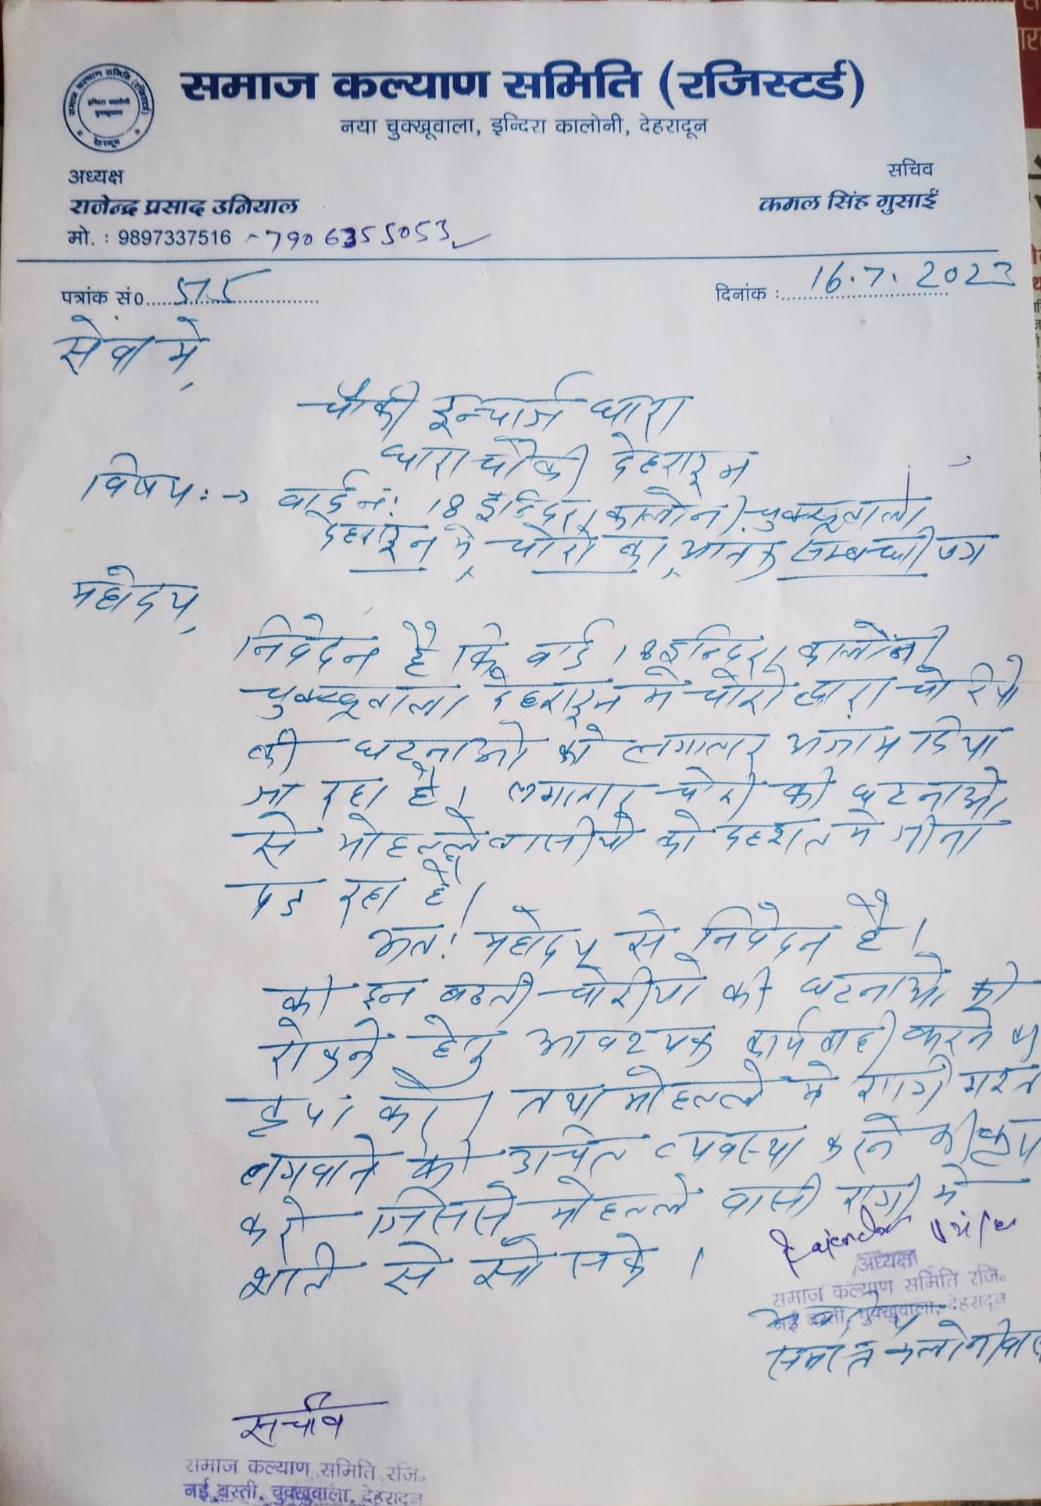 समाज कल्याण समिति (रजिस्टर्ड)
नया चुक्खूवाला, इन्दिरा कालोनी, देहरादून
समाज कल्याण समिति (रजिस्टर्ड)
इन्दिरा कालोनी
चुक्खूवाला
देहरादून
अध्यक्ष
राजेन्द्र प्रसाद उनियाल
मो. : 9897337516 - 7906355053
सचिव
कमल सिंह गुसाईं
पत्रांक सं० 575
दिनांक : 16.7.2023
सेवा में,
चौकी इन्चार्ज धारा
धारा चौकी देहरादून
विषय:-> वार्ड नं: 18 इन्दिरा कालोनी चुक्खूवाला
देहरादून में चोरो का आंतक सम्बन्धी
महोदय,
निवेदन है कि वार्ड 18 इन्दिरा कालोनी
चुक्खूवाला देहरादून मे चोरो द्वारा चोरीयो
की घटनाओ को लगातार अंजाम दिया
जा रहा है। लगातार चोरी की घटनाओ
से मोहल्लेवासीयो को दहशत मे जीना
पड रहा है।
अतः महोदय से निवेदन है।
की इन बढती चोरीयो की घटनाओ को
रोकने हेतु आवश्यक कार्यवाही करने की
कृपा करे। तथा मोहल्ले मे रात्री गस्त
लगवाने की उचित व्यवस्था करने की कृपा
करे जिससे मोहल्ले वासी रात्री मे
शांति से सो सके।
अध्यक्ष
समाज कल्याण समिति रजि०
नई बस्ती, चुक्खुवाला, देहरादून
समस्त कालोनीवासी
सचीव
समाज कल्याण समिति रजि०
नई बस्ती, चुक्खुवाला, देहरादून